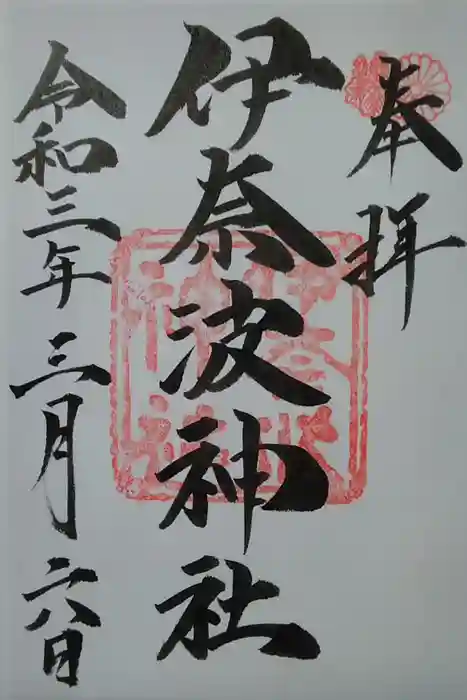 奉拝
伊奈波神社
令和三年三月六日